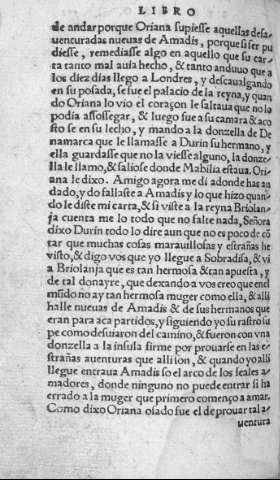 LIBRO
de andar porque Oriana supiesse aquellas desa
uenturadas nueuas de Amadis, porque si ser pu
diesse, remediasse algo en aquello que su car
ta tanto mal auia hecho, & tanto anduuo que a
los diez dias llego a Londres, y descaualgando
en su posada, se fue el palacio de la reyna, y quan
do Oriana lo vio el coraçon le saltaua que no lo
podia assossegar, & luego fue a su camara & aco
sto se en su lecho, y mando a la donzella de De
namarca que le llamasse a Durin su hermano, y
ella guardasse que no la viesse alguno, la donze
lla le llamo, & saliose donde Mabilia estaua. Ori
ana le dixo. Amigo agora me di adonde has an
dado, y do fallaste a Amadis y lo que hizo quan
do le diste mi carta, & si viste a la reyna Briolan
ja cuenta me lo todo que no falte nada, Señora
dixo Durin todo lo dire aun que no es poco de cõ
tar que muchas cosas marauillosas y estrañas he
visto, & digo vos que yo llegue a Sobradisa, & vi
a Briolanja que es tan hermosa & tan apuesta, y
de tal donayre, que dexando a vos creo que enel
mũdo no ay tan hermosa muger como ella, & alli
halle nueuas de Amadis & de sus hermanos que
eran para aca partidos, y siguiendo yo su rastro su
pe como desuiaron del camino, & fueron con vna
donzella a la insula firme por prouarse en las e
strañas auenturas que alli son, & quando yo alli
llegue entraua Amadis so el arco de los leales a
madores, donde ninguno no puede entrar si ha
errado a la muger que primero començo a amar.
Como dixo Oriana osado fue el de prouar tal a
uentura